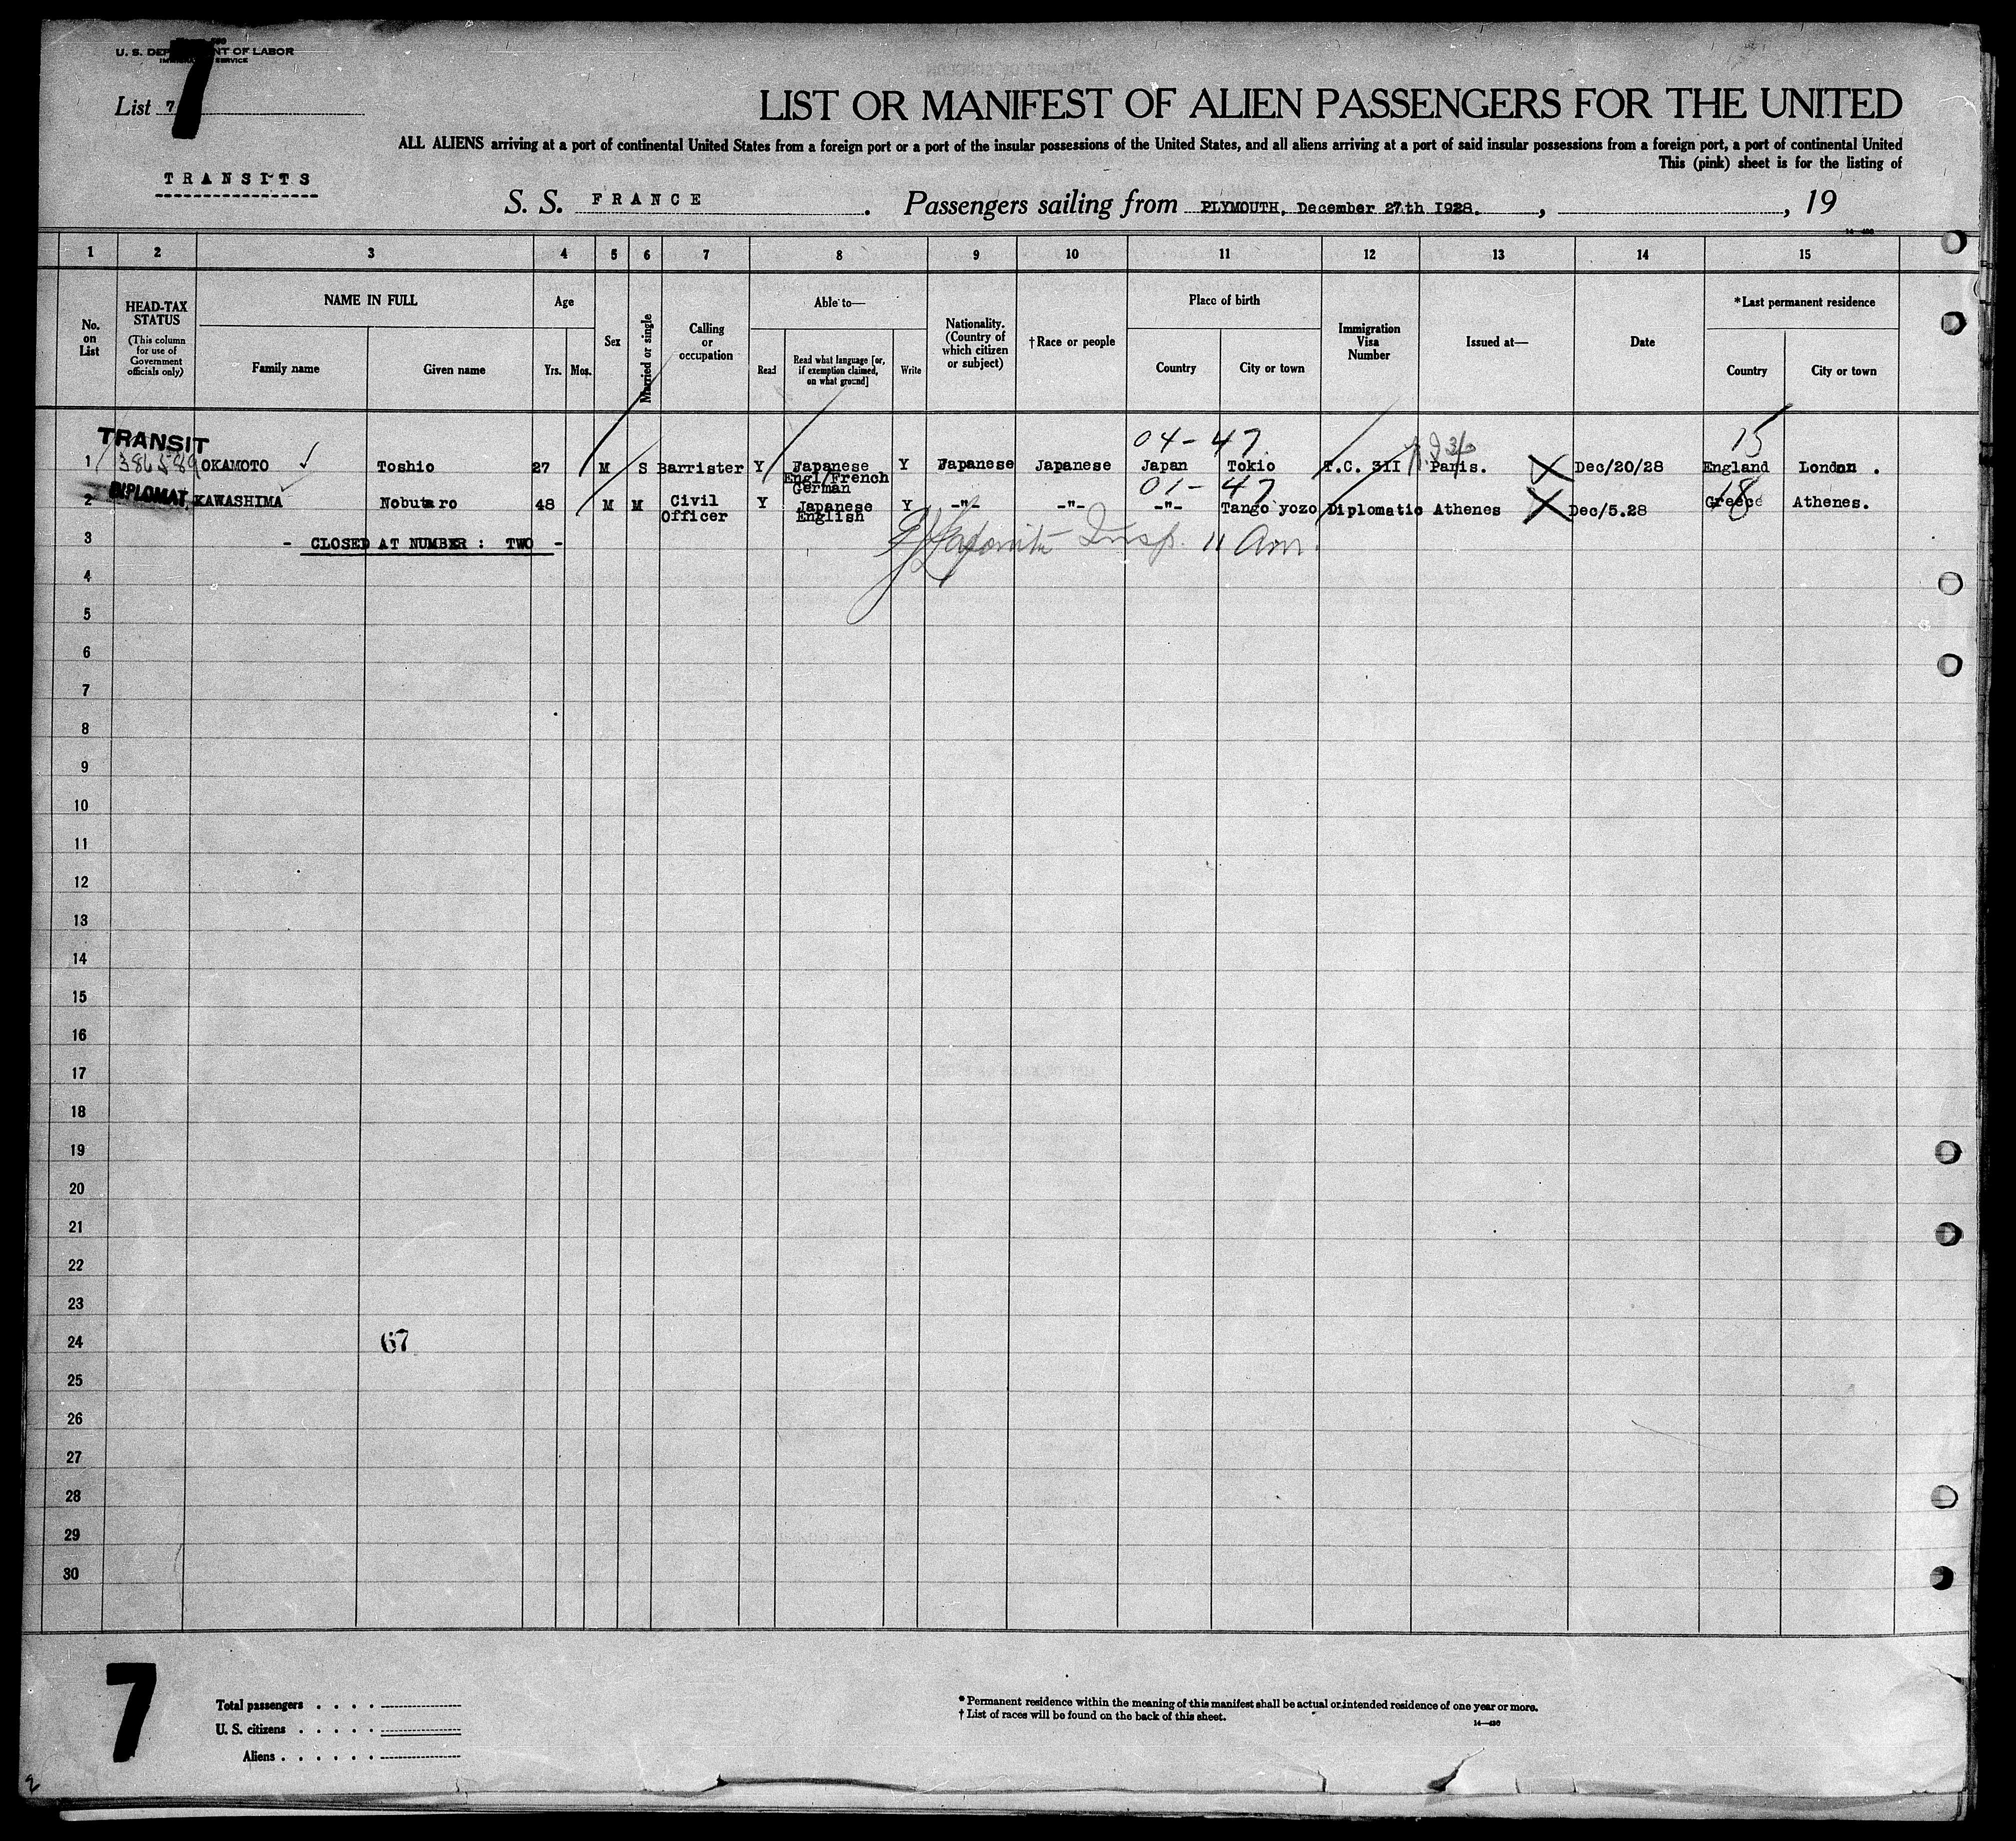 U. S. DEP NT OF LABOR
SERVICE
List 7
7
TRANSITS
LIST OR MANIFEST OF ALIEN PASSENGERS FOR THE UNITED
ALL ALIENS arriving at a port of continental United States from a foreign port or a port of the insular possessions of the United States, and all aliens arriving at a port of said insular possessions from a foreign port, a port of continental United
This (pink) sheet is for the listing of
S. S. FRANCE. Passengers sailing from PLYMOUTH, December 27th 1928. , , 19
1 2 3 4 5 6 7 8 9 10 11 12 13 14 15
No. on List
HEAD-TAX STATUS
(This column for use of Government officials only)
NAME IN FULL
Family name
Given name
Age
Yrs. Mos.
Sex
Married or single
Calling or occupation
Able to—
Read
Read what language [or, if exemption claimed, on what ground]
Write
Nationality. (Country of which citizen or subject)
†Race or people
Place of birth
Country
City or town
Immigration Visa Number
Issued at—
Date
*Last permanent residence
Country
City or town
TRANSIT
04-47 15
1 OKAMOTO Toshio 27 M S Barrister Y Japanese Engl/French German Y Japanese Japanese Japan Tokio T.C. 3II Paris. Dec/20/28 England London .
DIPLOMAT
01-47 18
2 KAWASHIMA Nobutaro 48 M M Civil Officer Y Japanese English Y -"- -"- -"- Tango yozo Diplomatic Athenes Dec/5.28 Greece Athenes.
3 - CLOSED AT NUMBER : TWO -
Insp. 11 Am.
4
5
6
7
8
9
10
11
12
13
14
15
16
17
18
19
20
21
22
23
24 67
25
26
27
28
29
30
7
Total passengers . . . .
U. S. citizens . . . . .
Aliens . . . . . .
*Permanent residence within the meaning of this manifest shall be actual or intended residence of one year or more.
†List of races will be found on the back of this sheet.
14—430
2